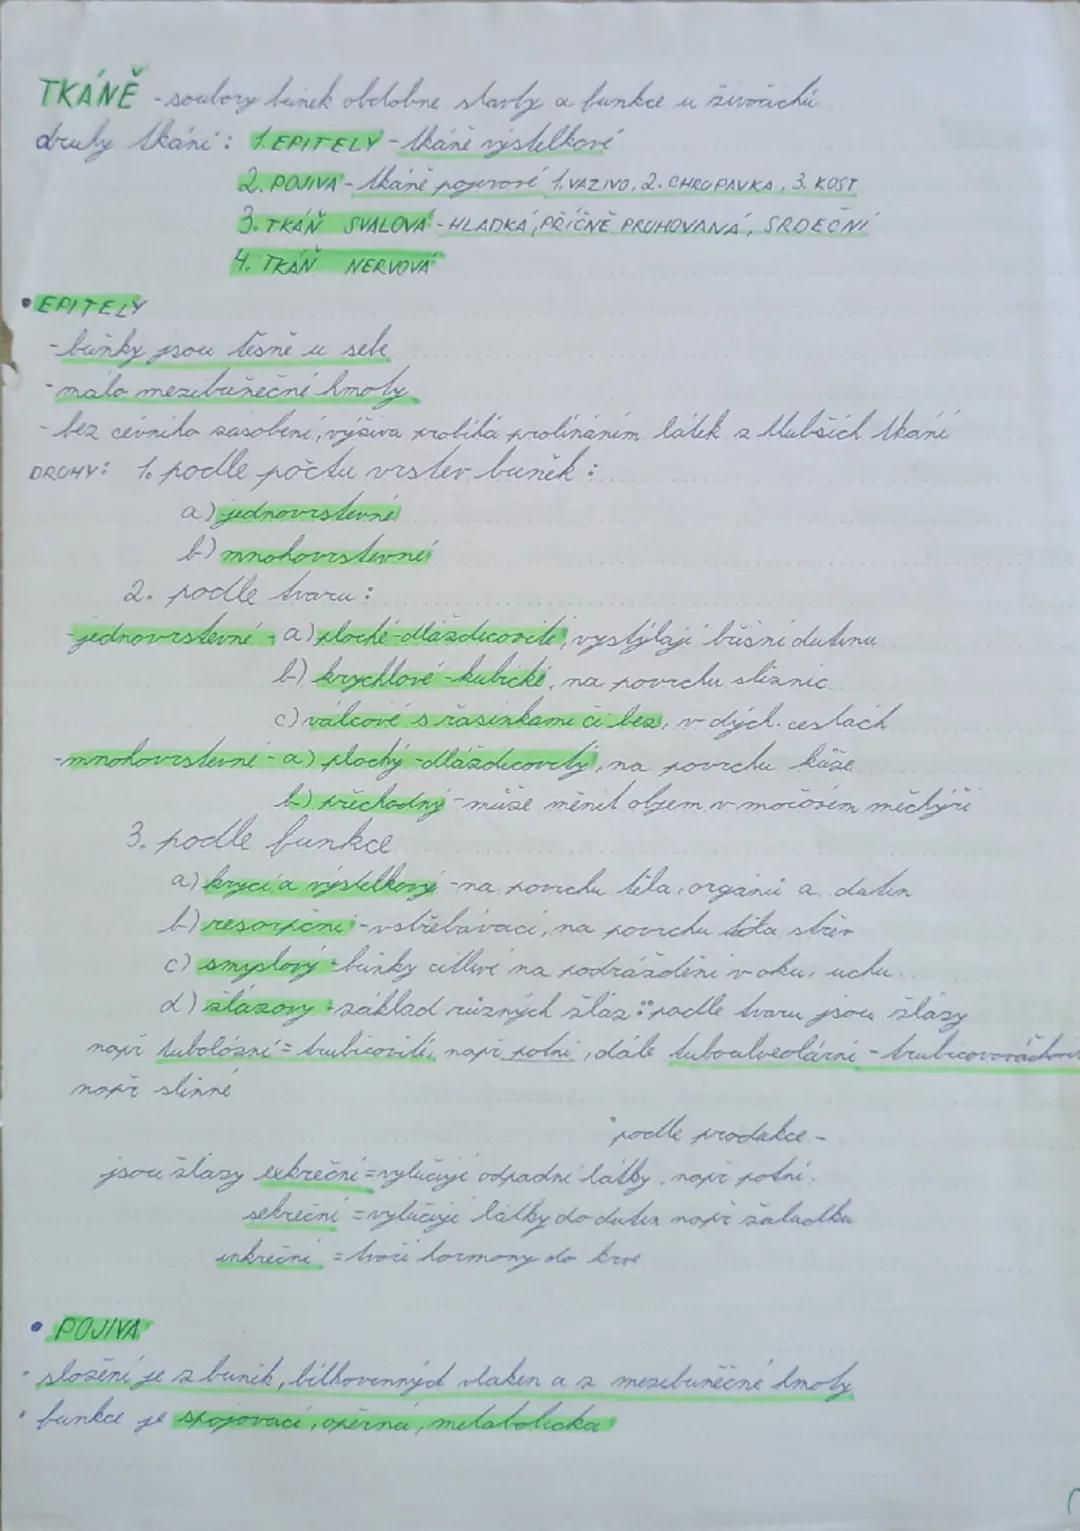 TKÁNĚ - soubory buněk obdobné stavby a funkce u živočichů
druhy tkání: 1. EPITELY - tkáně výstelkové
2. POJIVA - tkáně pojivové 1. VAZIVO, 2. CHRUPAVKA, 3. KOST
3. TKÁŇ SVALOVÁ - HLADKÁ, PŘÍČNĚ PRUHOVANÁ, SRDEČNÍ
4. TKÁŇ NERVOVÁ
• EPITELY
- buňky jsou těsně u sebe
- málo mezibuněčné hmoty
- bez cévního zásobení, výživa probíhá prolínáním látek z hlubších tkání
DRUHY: 1. podle počtu vrstev buněk:
a) jednovrstevné
b) mnohovrstevné
2. podle tvaru:
- jednovrstevné - a) ploché - dlaždicovité, vystýlají břišní dutinu
b) krychlové - kubické, na povrchu sliznic
c) válcové s řasinkami či bez, v dých. cestách
- mnohovrstevné - a) plochý - dlaždicovitý, na povrchu kůže
b) přechodný - může měnit objem v močovém měchýři
3. podle funkce
a) krycí a výstelkový - na povrchu těla, orgánů a dutin
b) resorpční - vstřebávací, na povrchu střev
c) smyslový - buňky citlivé na podráždění v oku, uchu
d) žlázový - základ různých žláz: podle tvaru jsou žlázy
např tubolózní = trubicovité, např potní, dále tuboalveolární -
např slinné
• podle produkce -
jsou žlázy exkreční = vylučuje odpadní látky, např potní,
sekreční = vylučuje látky do dutin např žaludku
inkreční = tvoří hormony do krve
• POJIVA
• složení je z buněk, bílkovinných vláken a z mezibuněčné hmoty
• funkce je spojovací, opěrná, metabolická